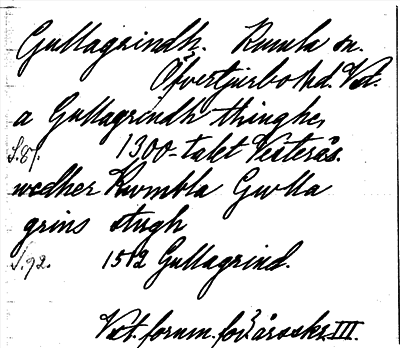 Gullagrindh. Rumla sn.
Åfvertjurbo hd. Vst.
a Gullagrindh thinghe,
S. 87. 1300-talet Västerås.
wedher Rumbla Gwlla
grins stygh
S. 92. 1512 Gullagrind.
Vst. fornm. för. årsskr. III.